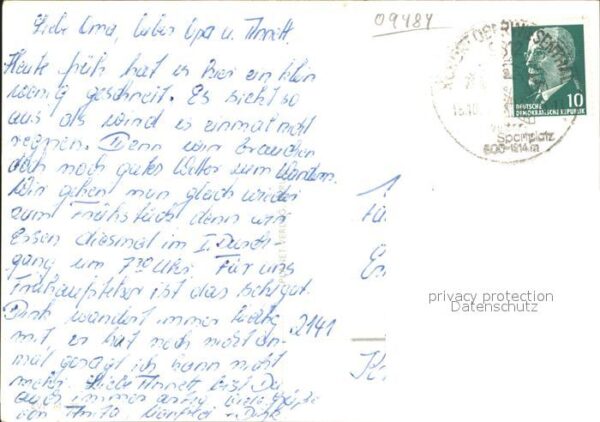 Liebe Oma, lieber Opa u. Annett.
Heute früh hat es hier ein klein
wenig geschneit. Es sieht so
aus als wird es einmal nicht
regnen. Denn wir brauchen
doch noch gutes Wetter zum Wandern.
Wir gehen nun gleich wieder
zum Frühstück denn wir
Essen diesmal im I. Durch-
gang um 7 30 Uhr. Für uns
Frühaufsteher ist das sehr gut.
Dirk wandert immer
mit, er hat noch nicht ein-
mal gesagt ich kann nicht
mehr. Liebe Annett bist Du
auch immer artig viele Grüße
von Anita Manfred + Dirk
09484
KURORT
Sportplatz
600-814 m
DEUTSCHE
DEMOKRATISCHE REPUBLIK
10
2141
privacy protection
Datenschutz